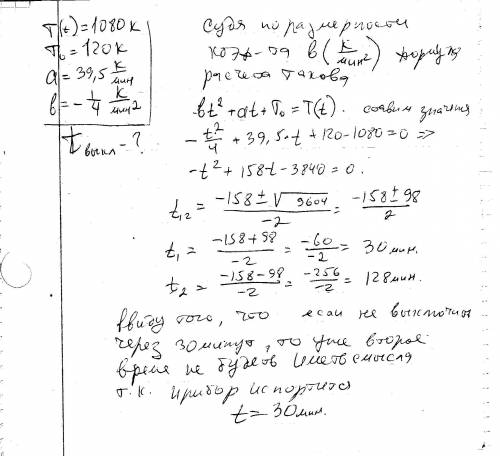 T(t) = 1080 К
T₀ = 120 К
a = 39,5 К/мин
b = -1/4 К/мин2
t выкл - ?
Судя по размерности
коэф-та в (К/мин²) формула
расчета такова
bt² + at + T₀ = T(t).
значения
-t²/4 + 39,5·t + 120 - 1080 = 0 =>
-t² + 158t - 3840 = 0.
t₁,₂ = (-158 ± √9604)/-2 = (-158 ± 98)/2
t₁ = (-158 + 98)/-2 = -60/-2 = 30 мин.
t₂ = (-158 - 98)/-2 = -256/-2 = 128 мин.
Ввиду того, что если не выключим
через 30 минут, то уже второе
время не будет иметь смысла
т.к. прибор испортится
t = 30 мин.